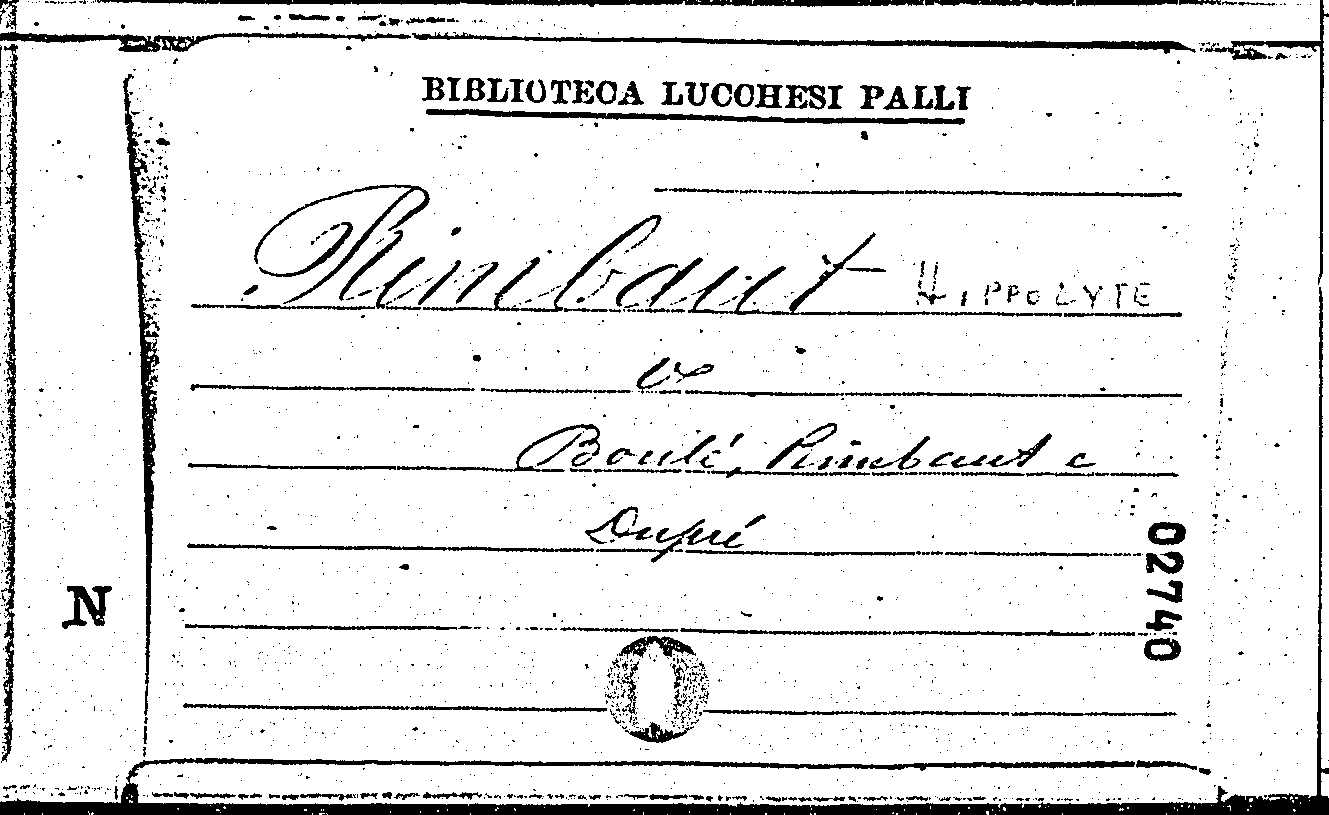 BIBLIOTECA LUCCHESI PALLI
Rimbaut HIPPOLYTE
V
Boulé, Rimbaut e
Dupré
02740
N